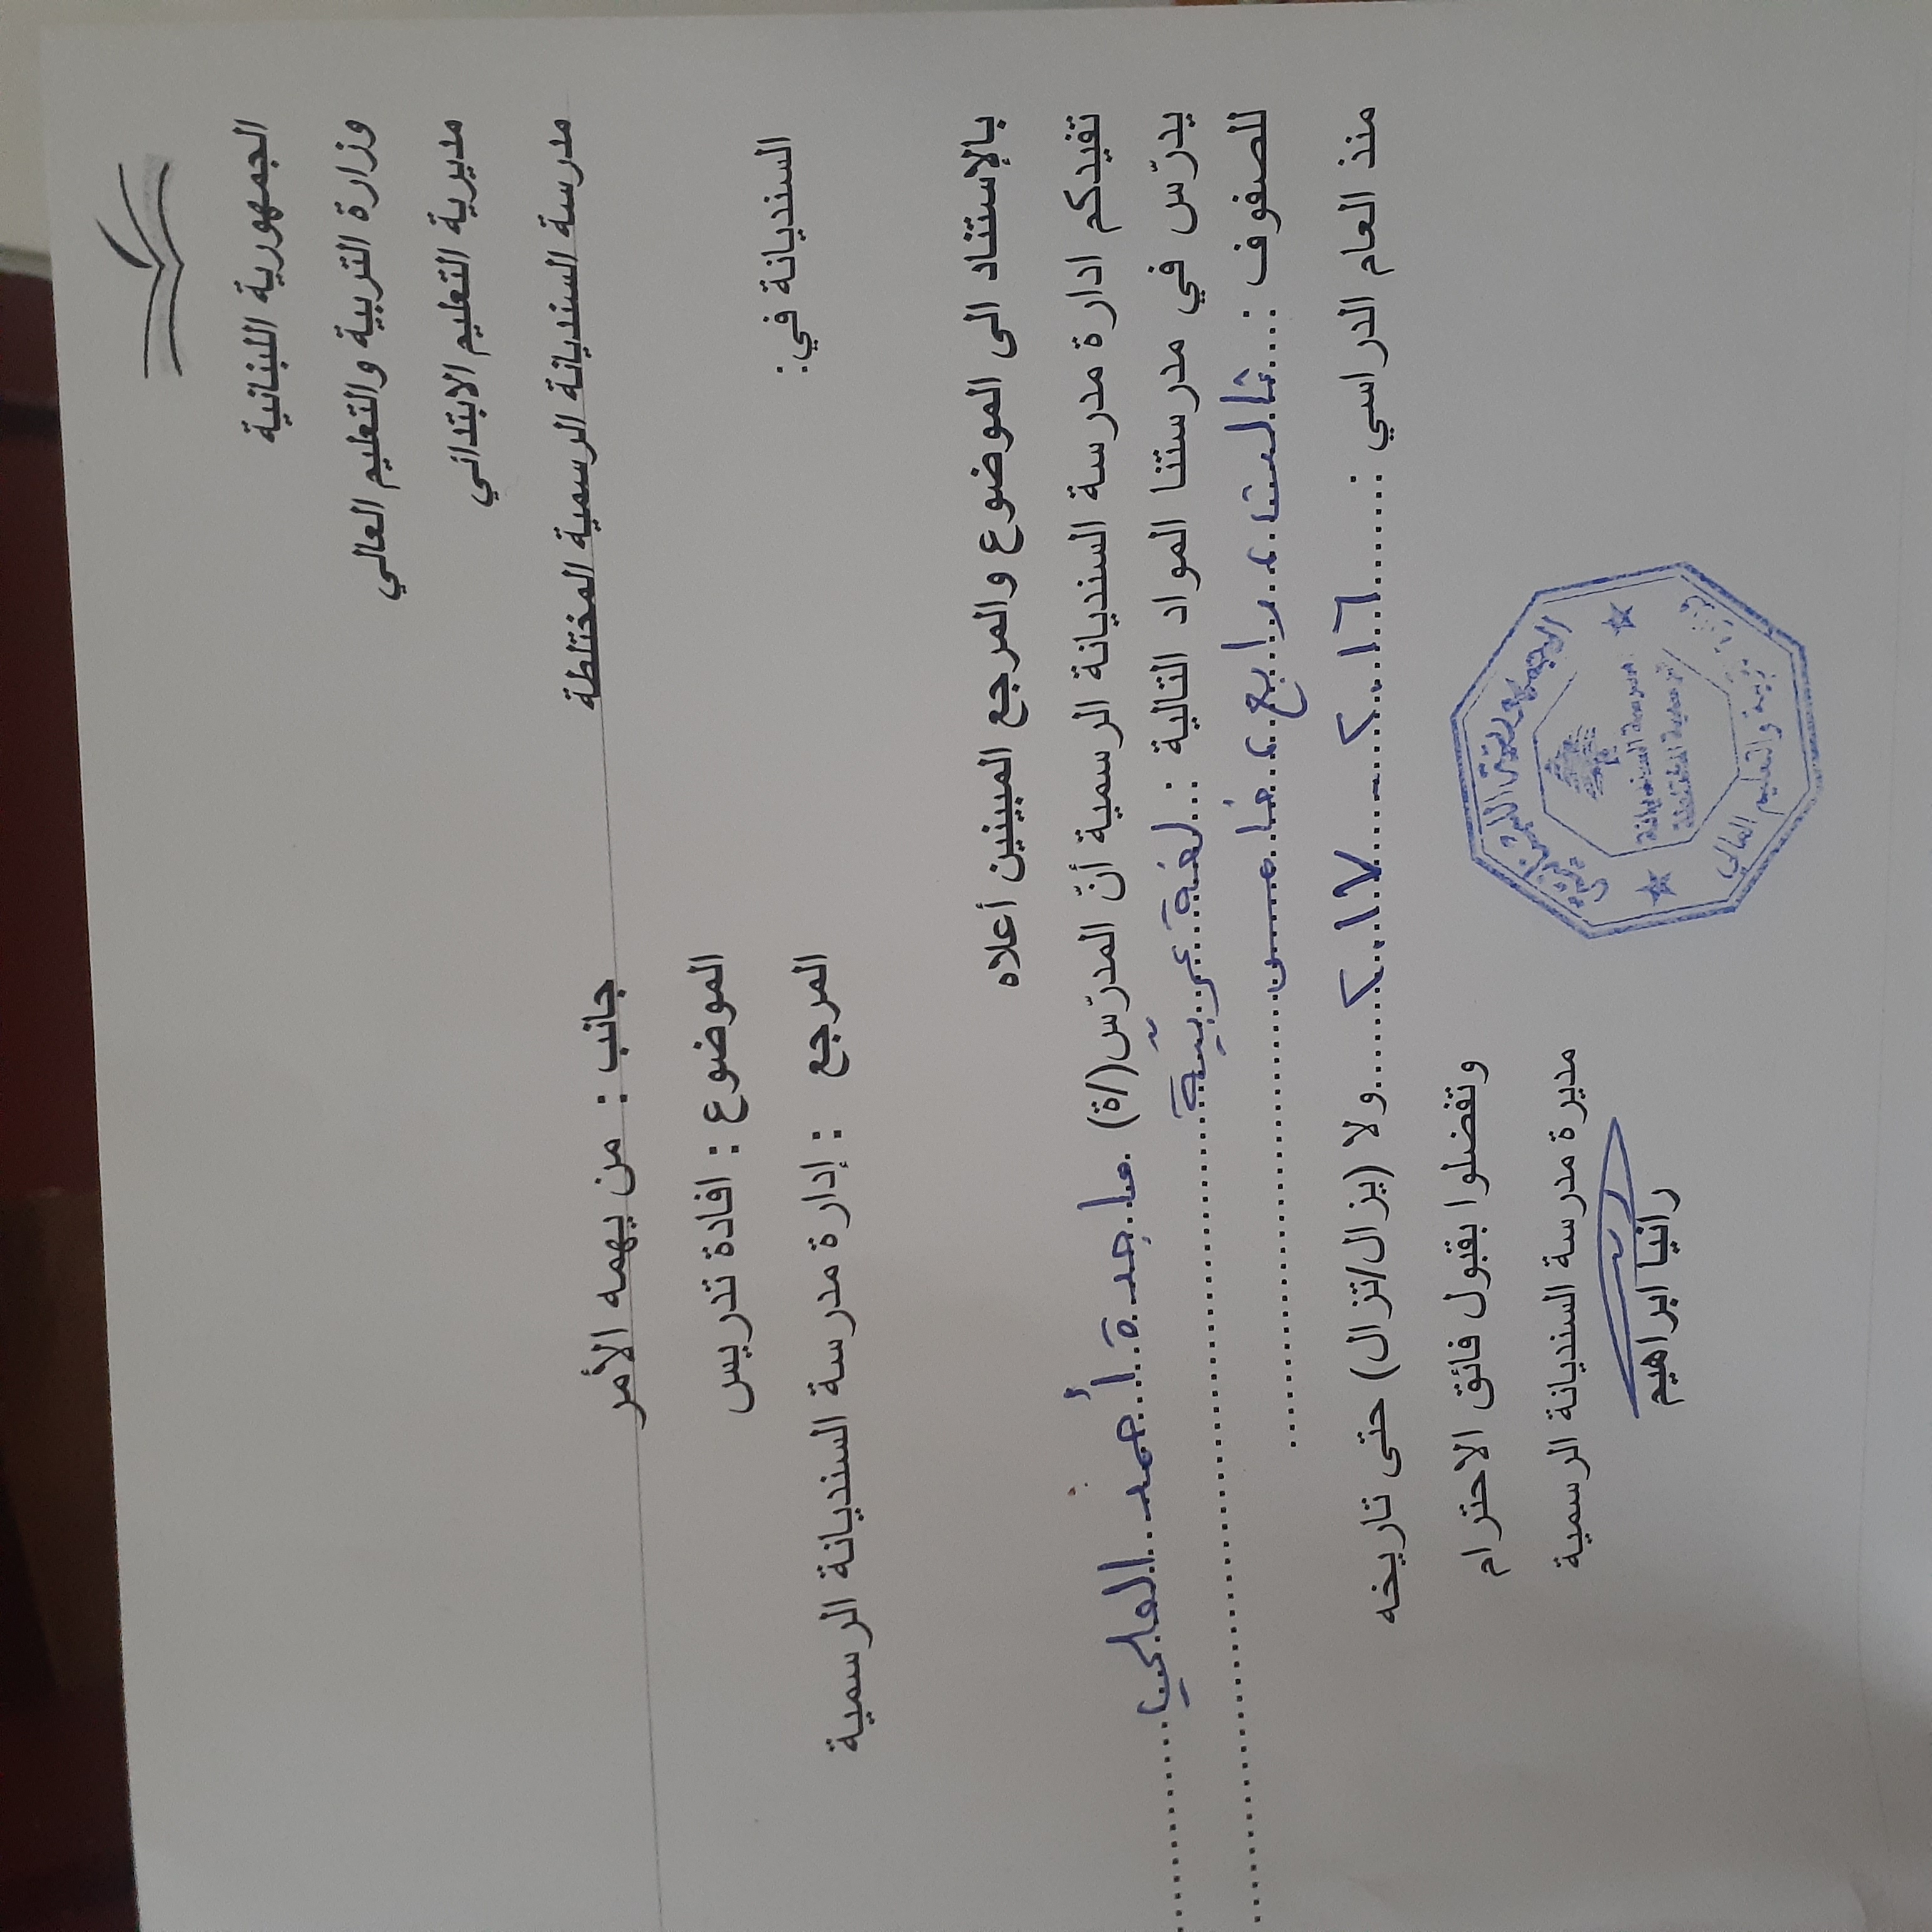 الجمهورية اللبنانية
وزارة التربية والتعليم العالي
مديرية التعليم الابتدائي
مدرسة السنديانة الرسمية المختلطة
السنديانة في:
جانب : من يهمه الأمر
الموضوع : افادة تدريس
المرجع : إدارة مدرسة السنديانة الرسمية
بالإستناد الى الموضوع والمرجع المبينين أعلاه
تفيدكم ادارة مدرسة السنديانة الرسمية أنّ المدرّس(/ة) ماجدة أحمد العلي
يدرّس في مدرستنا المواد التالية : لغة عربيّة
للصفوف : ثالث، رابع، خامس
منذ العام الدراسي : ٢٠١٦ - ٢٠١٧ ولا (يزال/تزال) حتى تاريخه
وتفضلوا بقبول فائق الاحترام
مديرة مدرسة السنديانة الرسمية
رانيا ابراهيم
الجمهورية اللبنانية
مدرسة السنديانة
الرسمية المختلطة
التربية والتعليم العالي